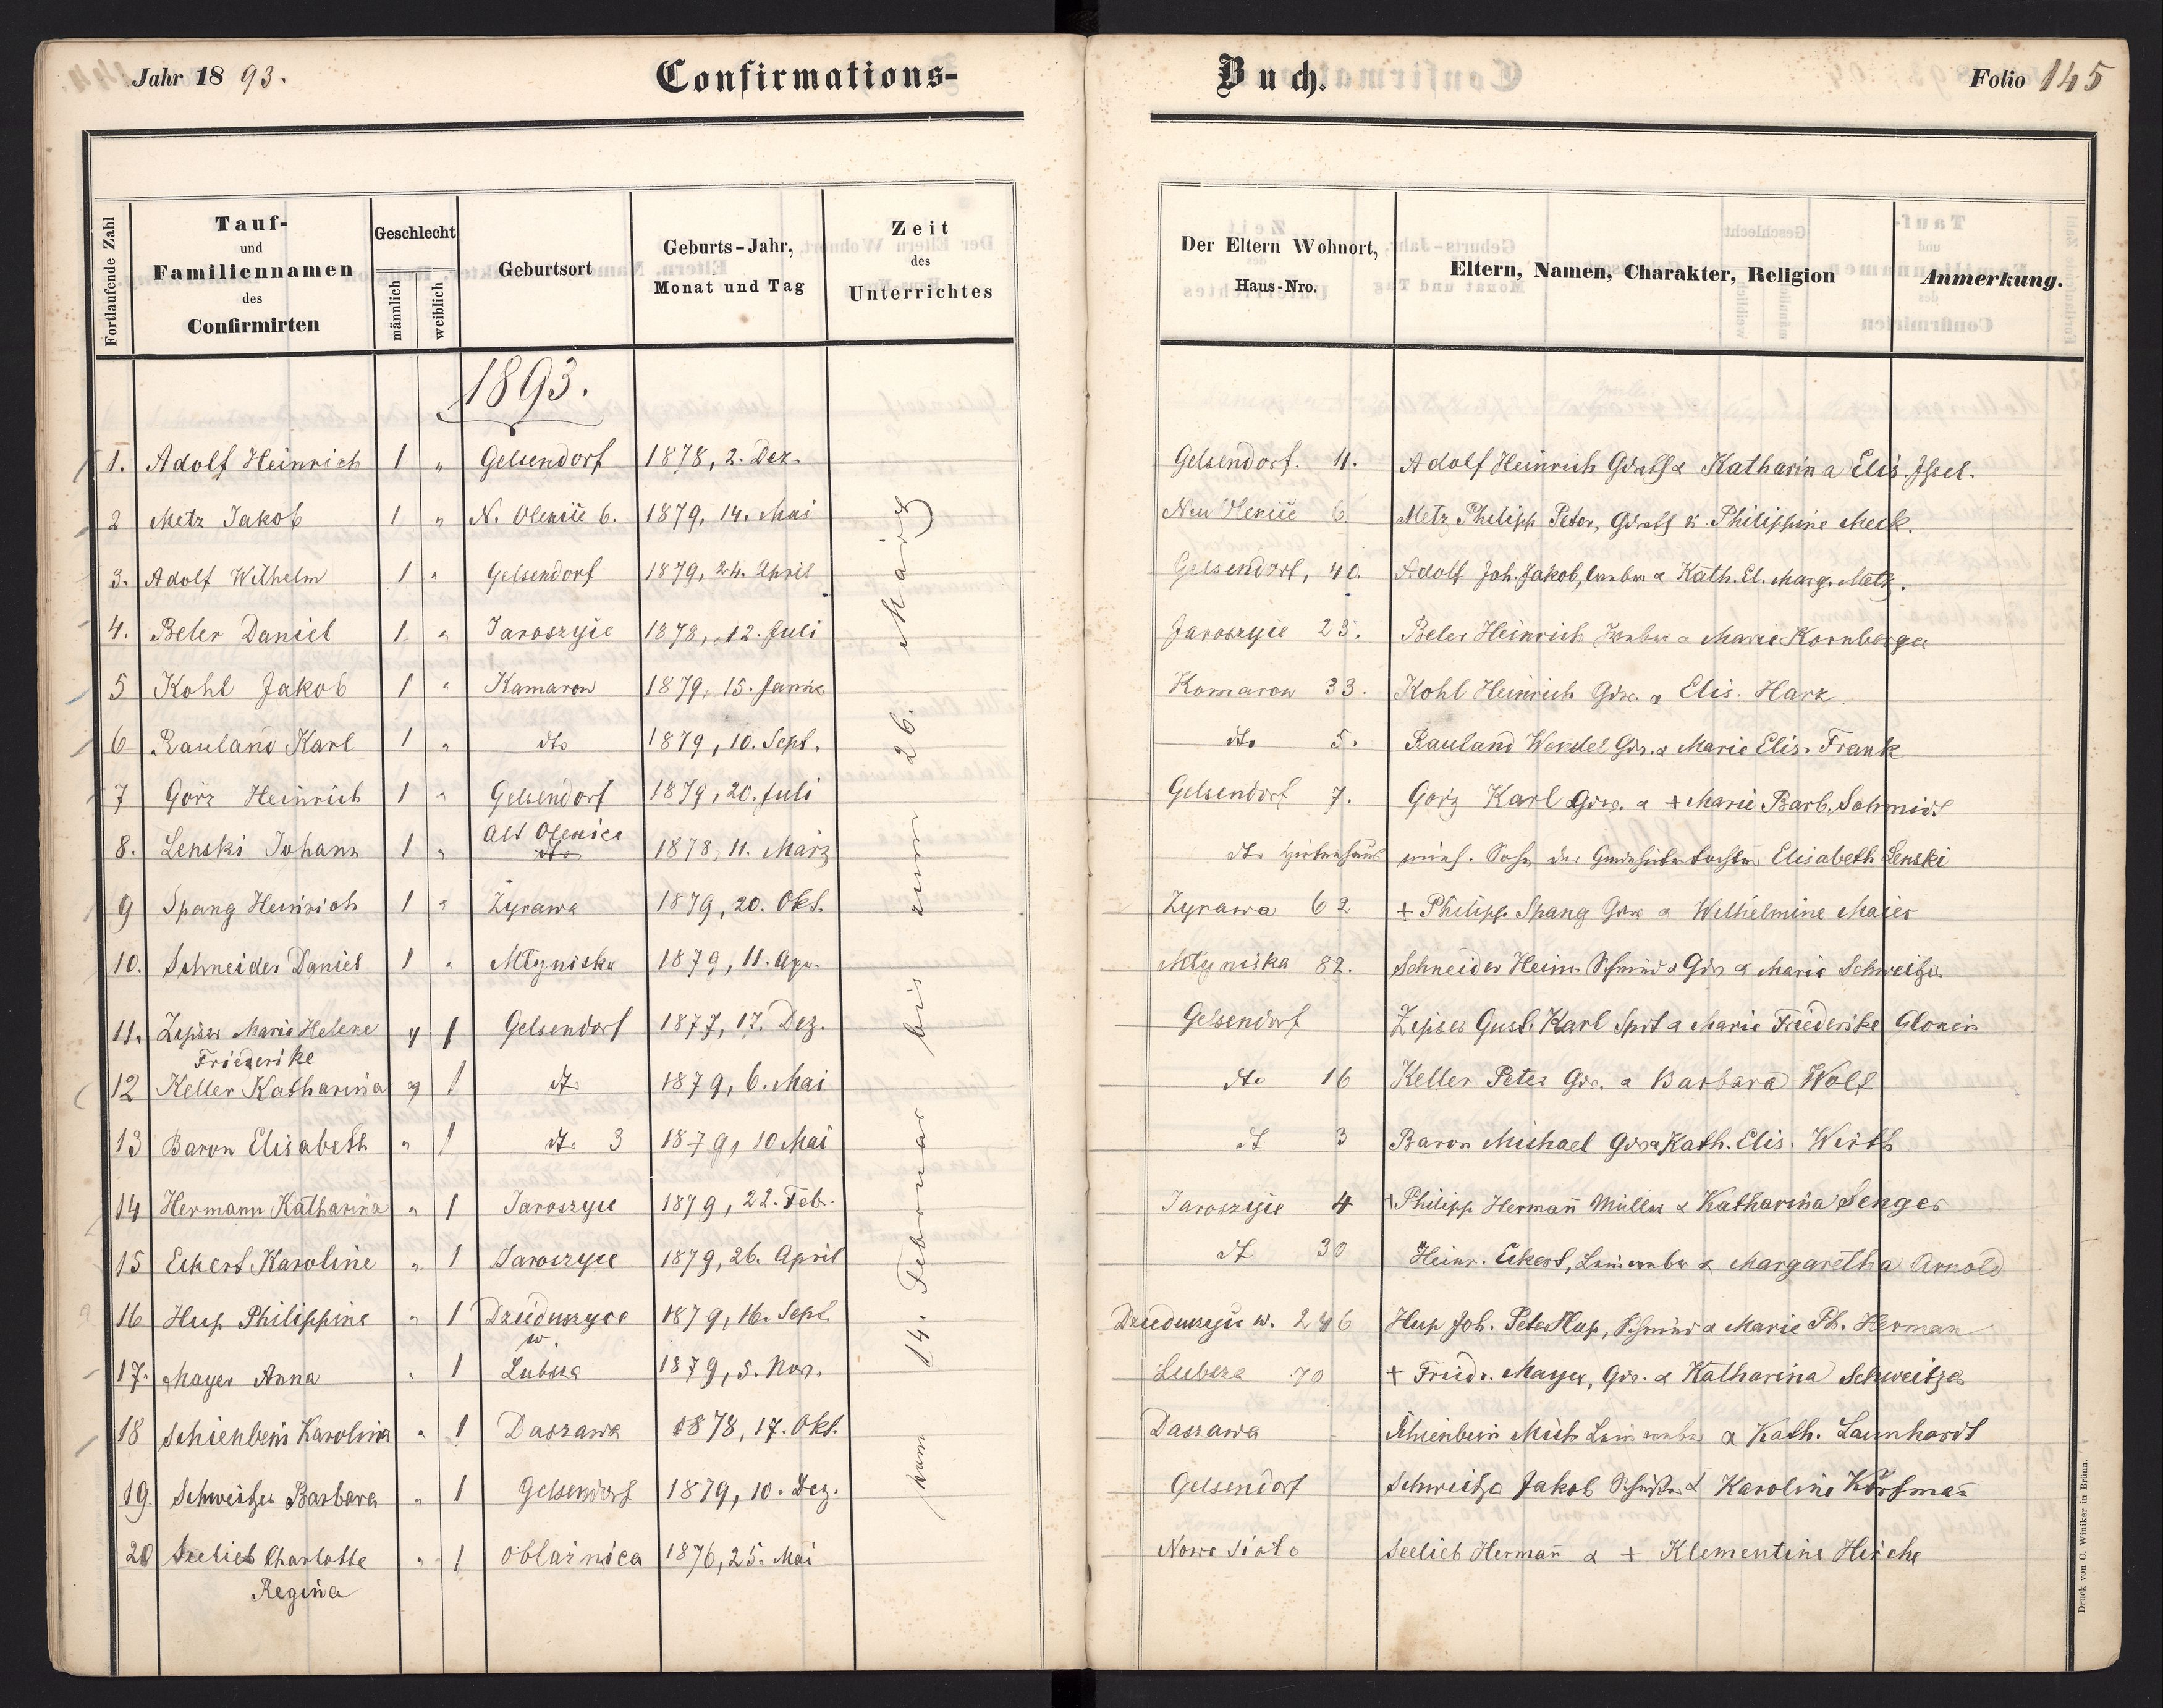 Jahr 18 93. Confirmations- Buch. Folio 145
Fortlaufende Zahl
Tauf- und Familiennamen des Confirmirten
Geschlecht
männlich
weiblich
Geburtsort
Geburts-Jahr, Monat und Tag
Zeit des Unterrichtes
Der Eltern Wohnort, Haus-Nro.
Eltern, Namen, Charakter, Religion
Anmerkung.
1893.
1. Adolf Heinrich 1 " Gelsendorf 1878, 2. Dez. Gelsendorf. 11. Adolf Heinrich & Katharina Elis.
2 Metz Jakob 1 " N. Oleniie 6. 1879, 14. Mai Neu Oleniie 6. Metz Philipp Peter, & Philippine Meck.
3. Adolf Wilhelm 1 " Gelsendorf 1879, 24. April Gelsendorf, 40. Adolf Joh. Jakob, & Kath. El. Marg. Metz.
4. Beler Daniel 1 " Jaroszyce 1878, 12. Juli Jaroszyce 23. Beler Heinrich & Marie Kornberger
5 Kohl Jakob 1 " Kamarow 1879, 15. Komarow 33. Kohl Heinrich & Elis. Harz
6 Rauland Karl 1 " dto 1879, 10. Sept. dto 5. Rauland Wendel & Marie Elis. Frank
7 Görz Heinrich 1 " Gelsendorf 1879, 20. Juli Gelsendorf 7. Görz Karl & + Marie Barb. Schmidt
8. Lenski Johann 1 " Alt Olenice dto 1878, 11. März dto Elisabeth Lenski
9 Spang Heinrich 1 " Zyrawa 1879, 20. Okt. Zyrawa 62 + Philipp Spang & Wilhelmine Maier
10. Schneider Daniel 1 " Młyniska 1879, 11. Młyniska 82. Schneider Heinr. & Marie Schweitzer
11. Zipser Marie Helene " 1 Gelsendorf 1877, 17. Dez. Gelsendorf Zipser Gust. Karl & Marie Friederike
Friederike
12 Keller Katharina " 1 dto 1879, 6. Mai dto 16 Keller Peter & Barbara Wolf
13 Baron Elisabeth " 1 dto 3 1879, 10 Mai dt 3 Baron Michael & Kath. Elis. Wirth
14 Hermann Katharina " 1 Jaroszyce 1879, 22. Feb. Jaroszyce 4 + Philipp Hermañ Müller & Katharina Senger
15 Eckert Karoline " 1 Jaroszyce 1879, 26. April dt 30 Heinr. Eckert, & Margaretha Arnold
16 Hup Philippine " 1 Dzieduszyce 1879, 16. Sept Dzieduszyce w. 246 Hup Joh. Peter Hup, & Marie Ph. Herman
w.
17. Mayer Anna " 1 Lubsza 1879, 5. Nov. Lubsza 70 + Friedr. Mayer, & Katharina Schweitzer
18 Schienbein Karolina " 1 Daszawa 1878, 17. Okt. Daszawa Schienbein Mich. & Kath. Launhardt
19 Schweitzer Barbara " 1 Gelsendorf 1879, 10. Dez. Gelsendorf Schweitzer Jakob & Karoline
20 Seelieb Charlotte " 1 Oblaźnica 1876, 25. Mai Nowe Sioło Seelieb Hermañ & + Klementine Hirche
Regina
vom 14. Februar bis zum 26. März
Druck von C. Winiker in Brünn.